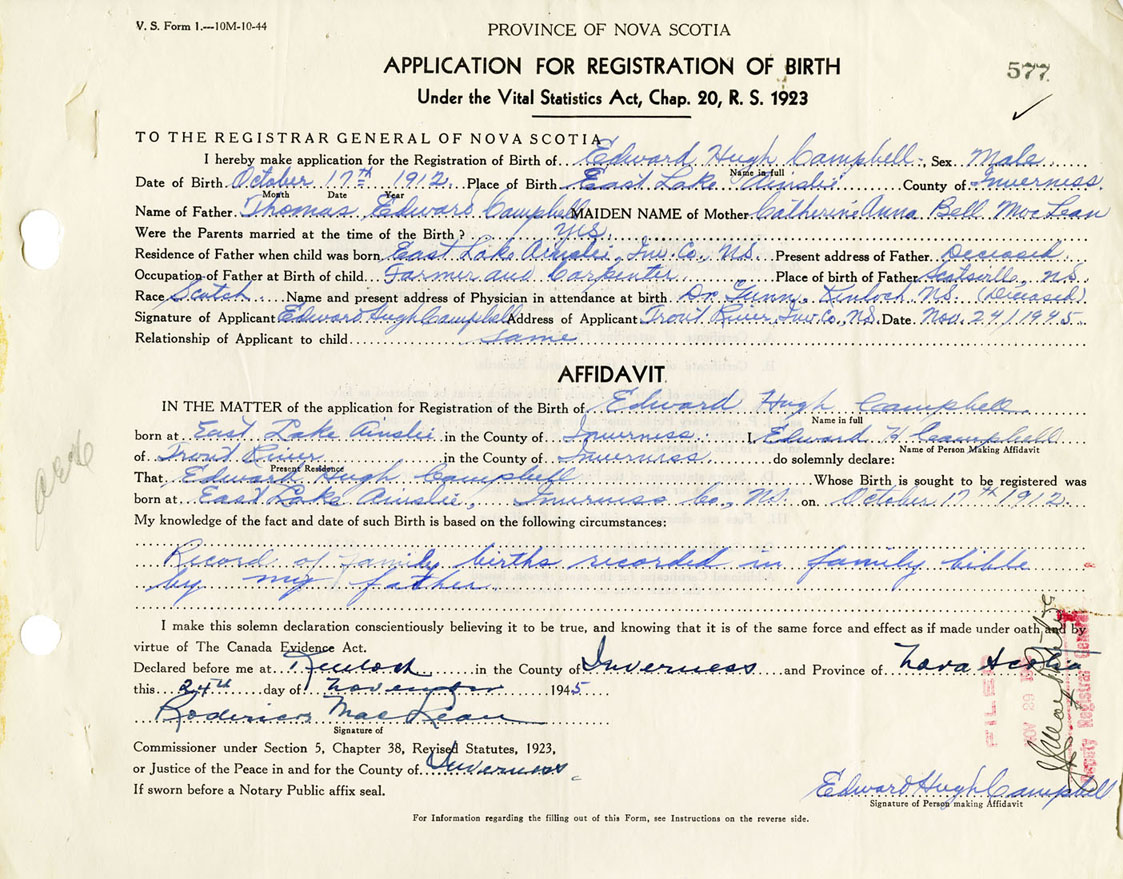 V. S. Form 1.---10M-10-44
PROVINCE OF NOVA SCOTIA
APPLICATION FOR REGISTRATION OF BIRTH
577
Under the Vital Statistics Act, Chap. 20, R. S. 1923
TO THE REGISTRAR GENERAL OF NOVA SCOTIA
I hereby make application for the Registration of Birth of Edward Hugh Campbell, Sex Male
Name in full
Date of Birth October 17th 1912. Place of Birth East Lake Ainslie County of Inverness.
Month Date Year
Name of Father Thomas Edward Campbell MAIDEN NAME of Mother Catherine Anna Bell MacLean
Were the Parents married at the time of the Birth? Yes.
Residence of Father when child was born East Lake Ainslie, Inv. Co., N.S. Present address of Father Deceased.
Occupation of Father at Birth of child Farmer and Carpenter Place of birth of Father Scotsville, N.S.
Race Scotch. Name and present address of Physician in attendance at birth. Dr. Gunn, Kinloch N.S. (Deceased)
Signature of Applicant Edward Hugh Campbell Address of Applicant Trout River, Inv Co., N.S. Date Nov. 24/1945.
Relationship of Applicant to child same
AFFIDAVIT
IN THE MATTER of the application for Registration of the Birth of Edward Hugh Campbell.
Name in full
born at East Lake Ainslie in the County of Inverness. I, Edward H Campbell
Name of Person Making Affidavit
of Trout River in the County of Inverness do solemnly declare:
Present Residence
That Edward Hugh Campbell Whose Birth is sought to be registered was
born at East Lake Ainslie, Inverness Co., N.S. on October 17th 1912.
My knowledge of the fact and date of such Birth is based on the following circumstances:
Record of family births recorded in family bible
by my father.
I make this solemn declaration conscientiously believing it to be true, and knowing that it is of the same force and effect as if made under oath and by
virtue of The Canada Evidence Act.
Declared before me at Kinloch in the County of Inverness and Province of Nova Scotia
this 24th day of November 1945
Roderick MacLean
Signature of
Commissioner under Section 5, Chapter 38, Revised Statutes, 1923,
or Justice of the Peace in and for the County of Inverness
If sworn before a Notary Public affix seal.
Edward Hugh Campbell
Signature of Person making Affidavit
For Information regarding the filling out of this Form, see Instructions on the reverse side.
FILED
NOV 29
Deputy Registrar General